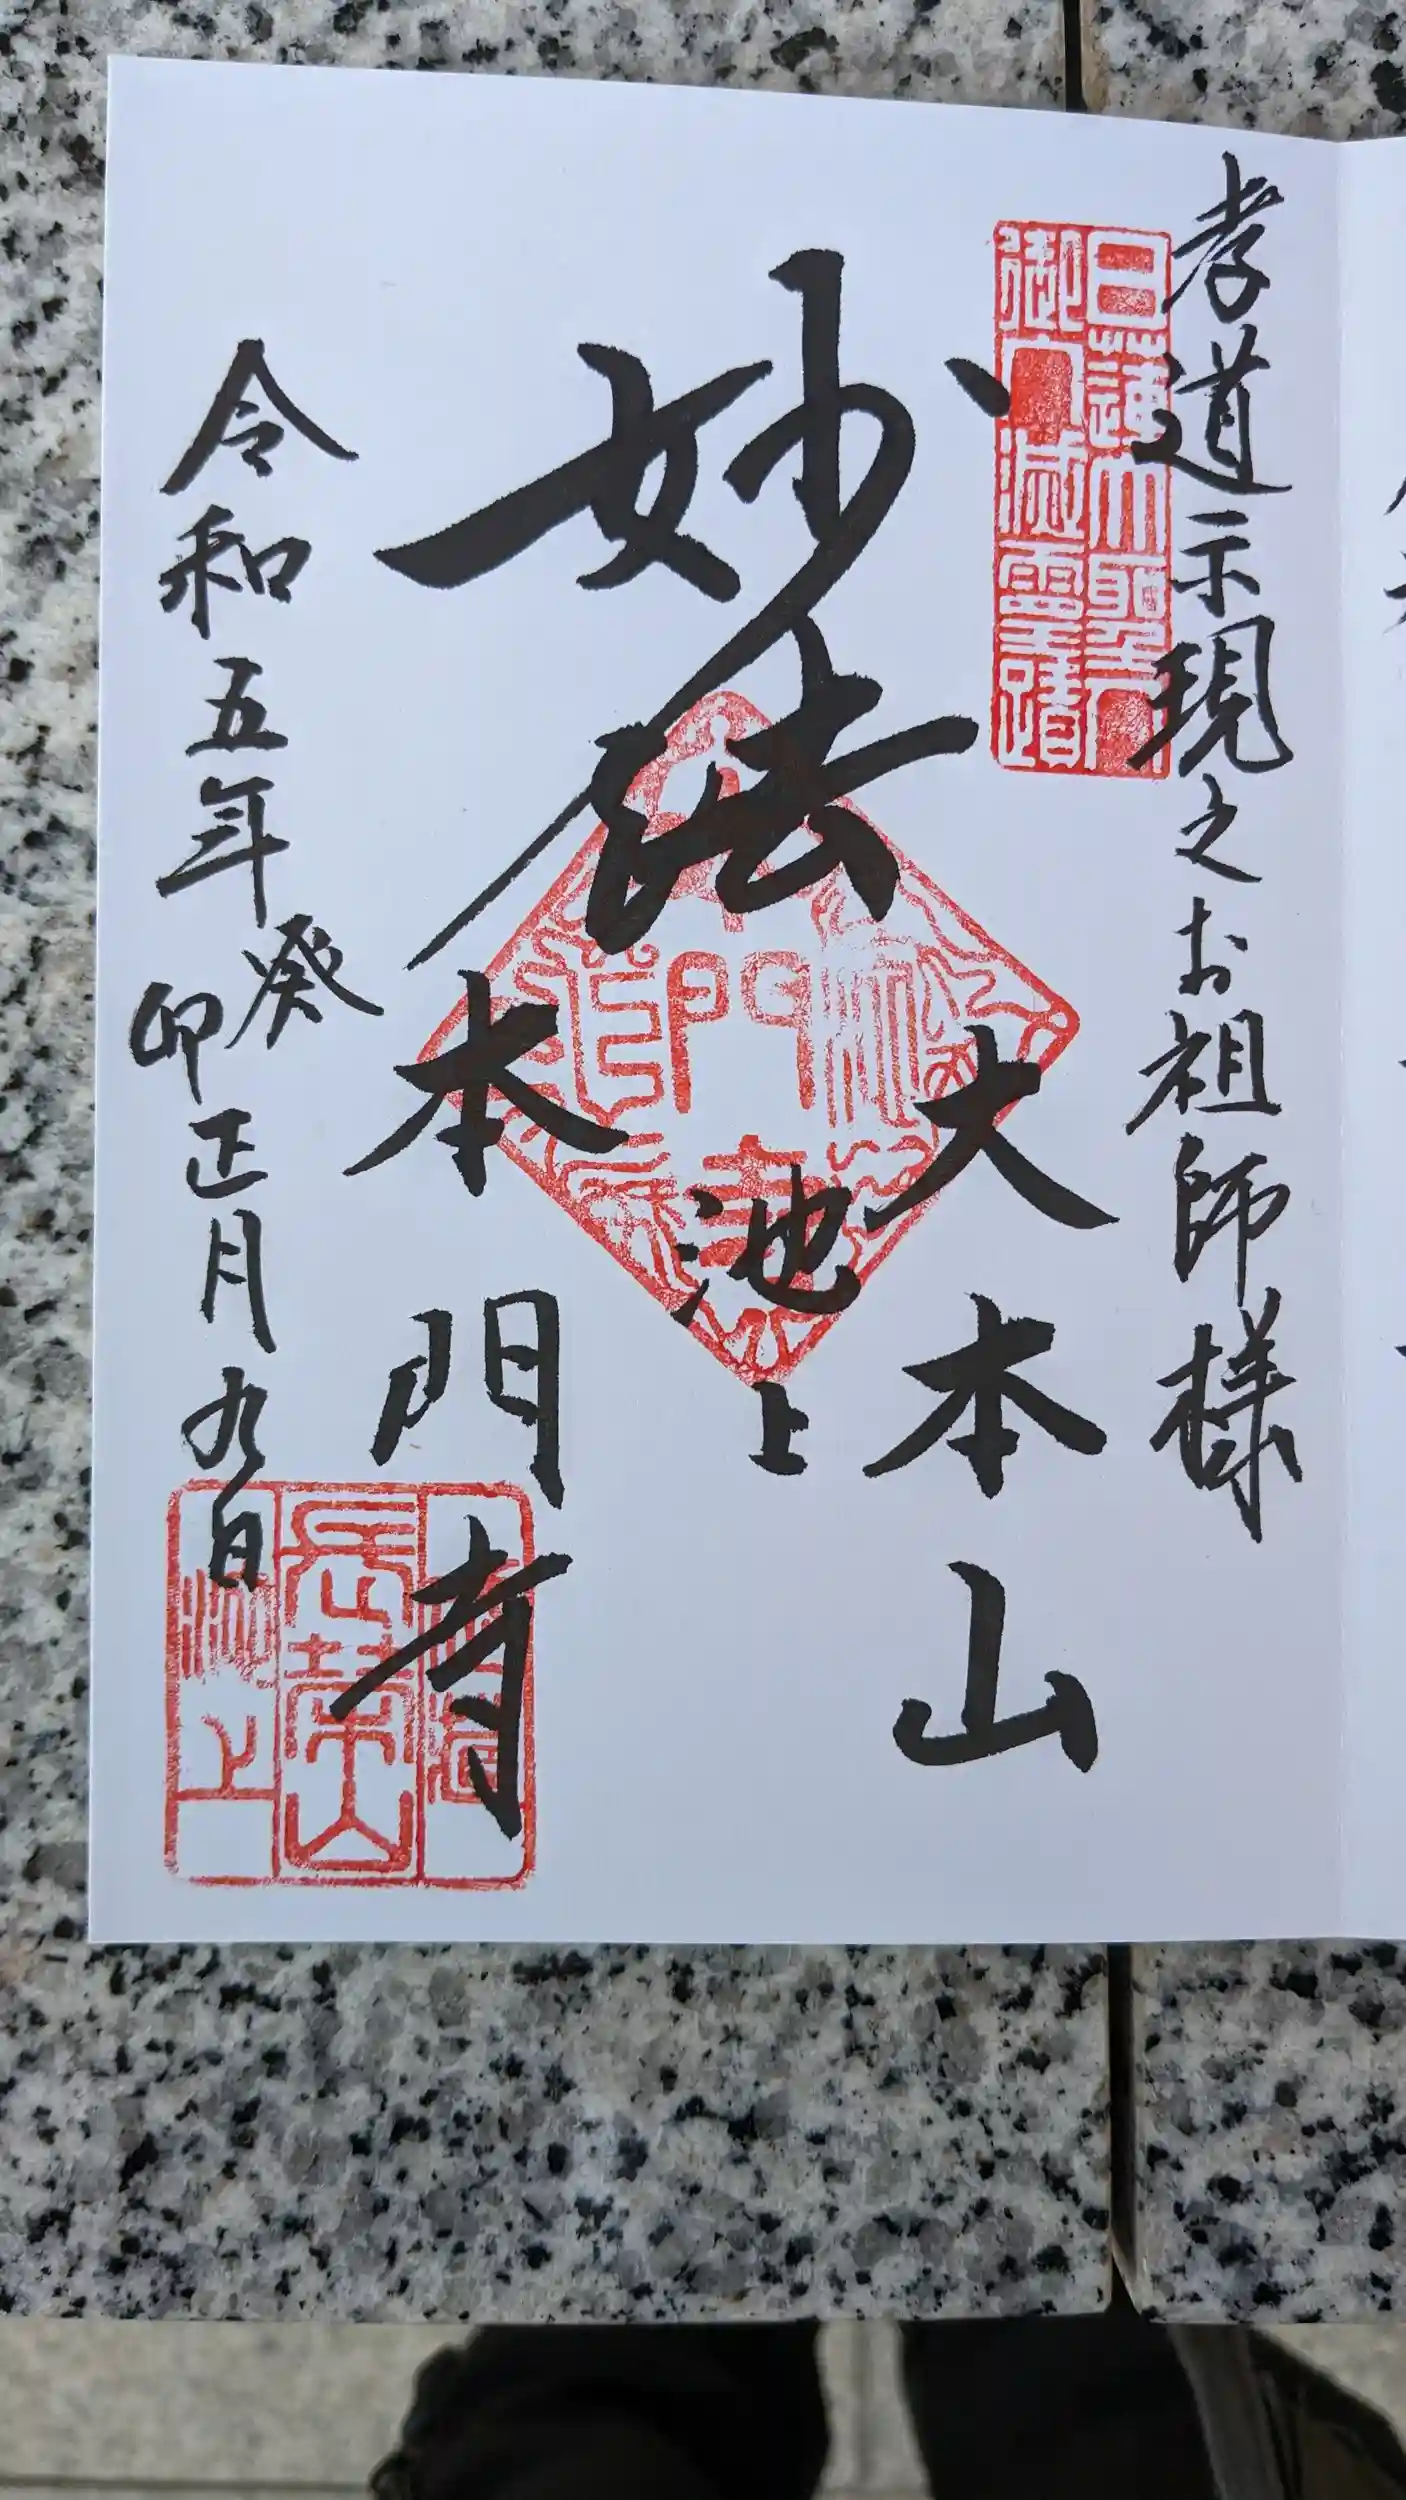 孝道示現之お祖師様
日蓮大聖人
御入滅靈蹟
妙法
大本山
池上
本門寺
令和五年癸卯正月九日
長榮山
池上